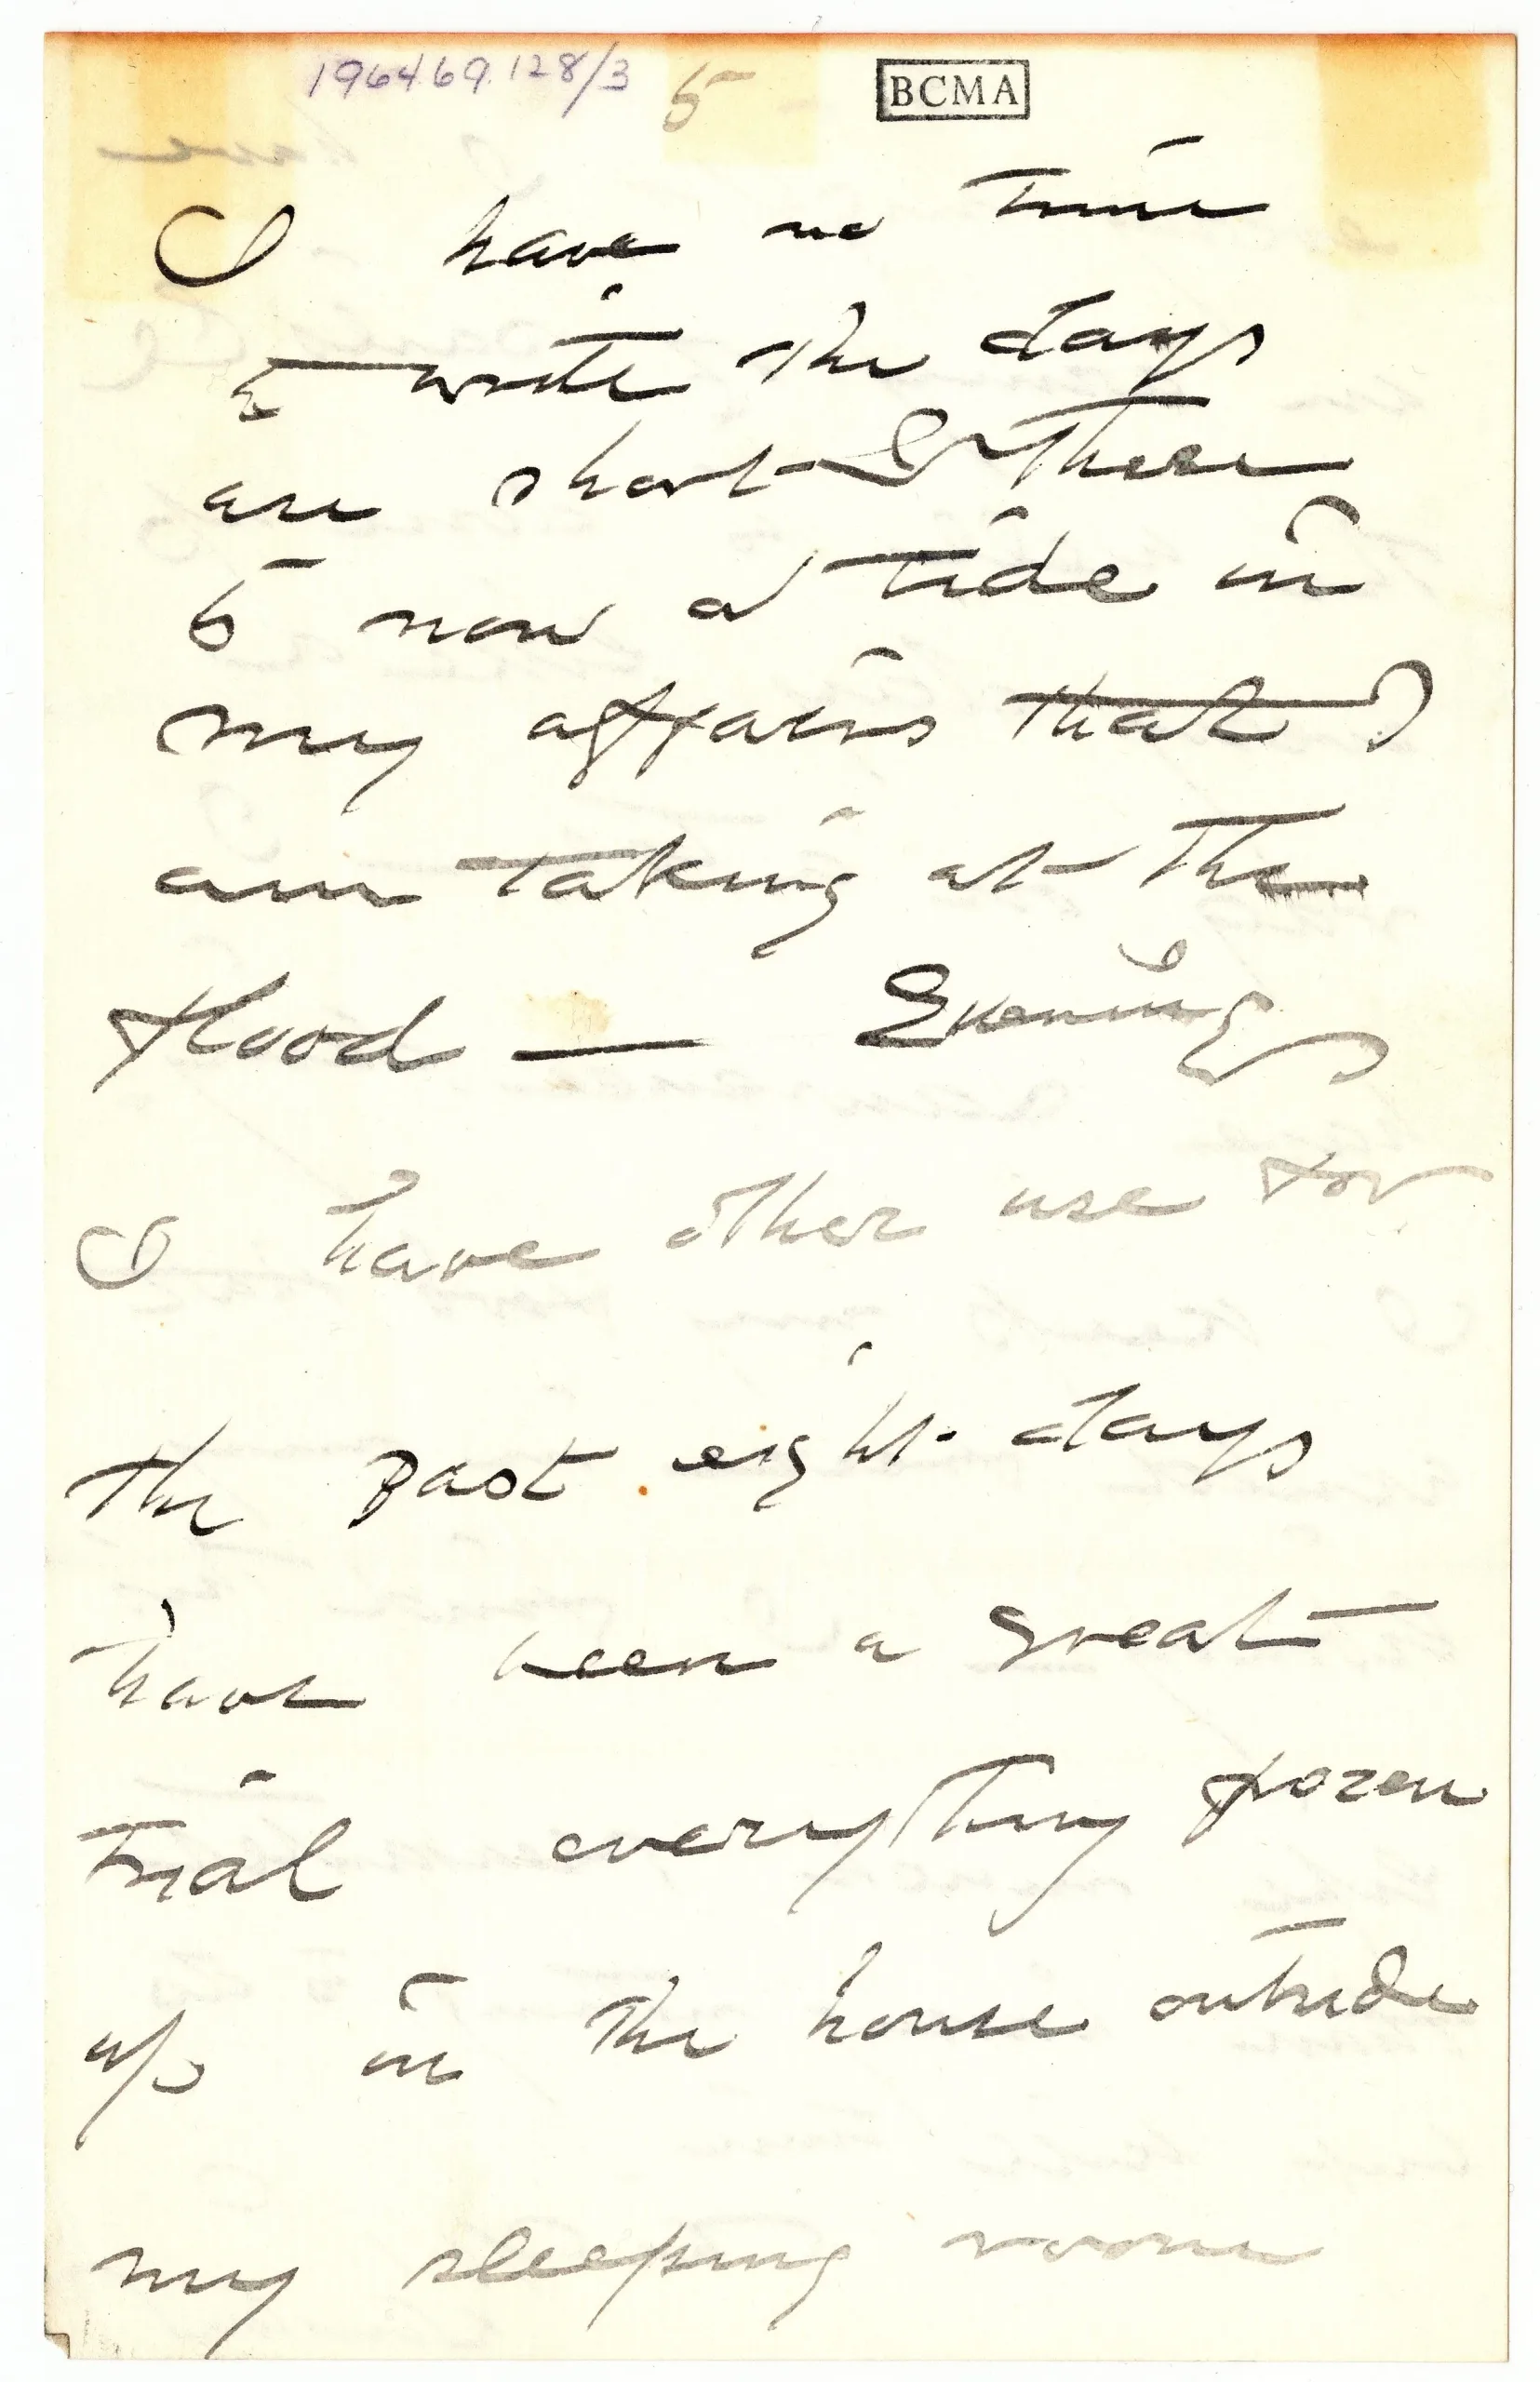 1964.69.128/3 5 BCMA
I have no time
to write the days
are short & there
is now a tide in
my affairs that I
am taking at the
flood — Evenings
I have other use for
the past eight days
have been a great
trial everything frozen
up in the house outside
my sleeping room